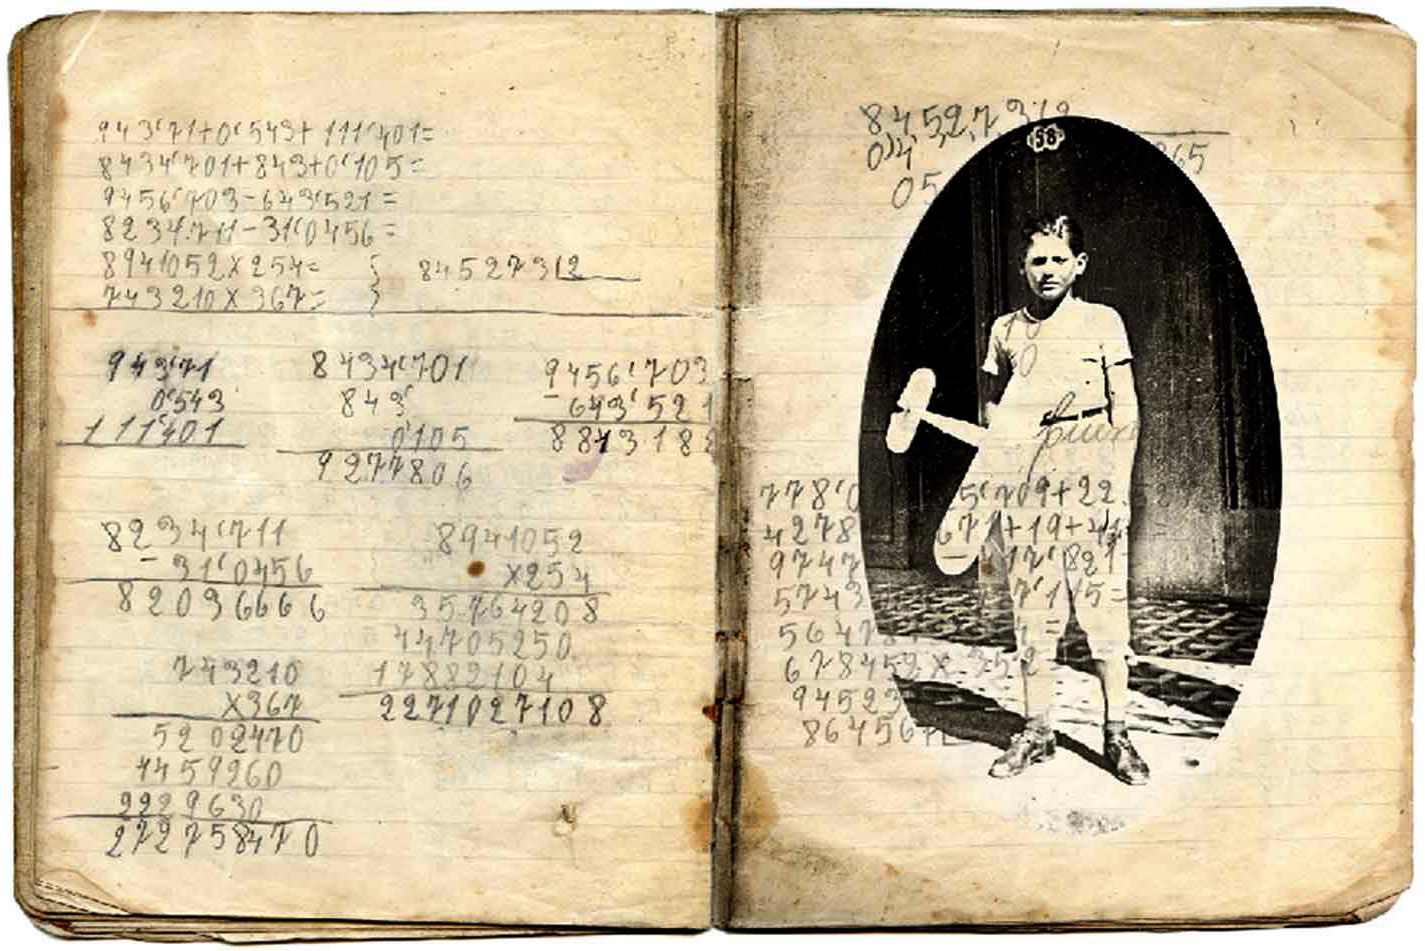 943'71+0'543+111'401=
8434'701+843+0'105=
9456'703-643'521=
8234'711-31'0456=
8941052X254=
845273 2
743210X367=
943'71
0'543
111'401
8434'701
843'
0'105
9277806
9456'703
-643'521
8813182
8234'711
-31'0456
82036666
8941052
X254
35764208
44705250
17882104
2271027108
743210
X367
5202470
4459260
2229630
272758470
845273 2
04
05
365
58
778'0 5'709+22.
4278 671+19+4
9747 -417'821-
5743 7'115=
5647 =
678459X352
94523
86456